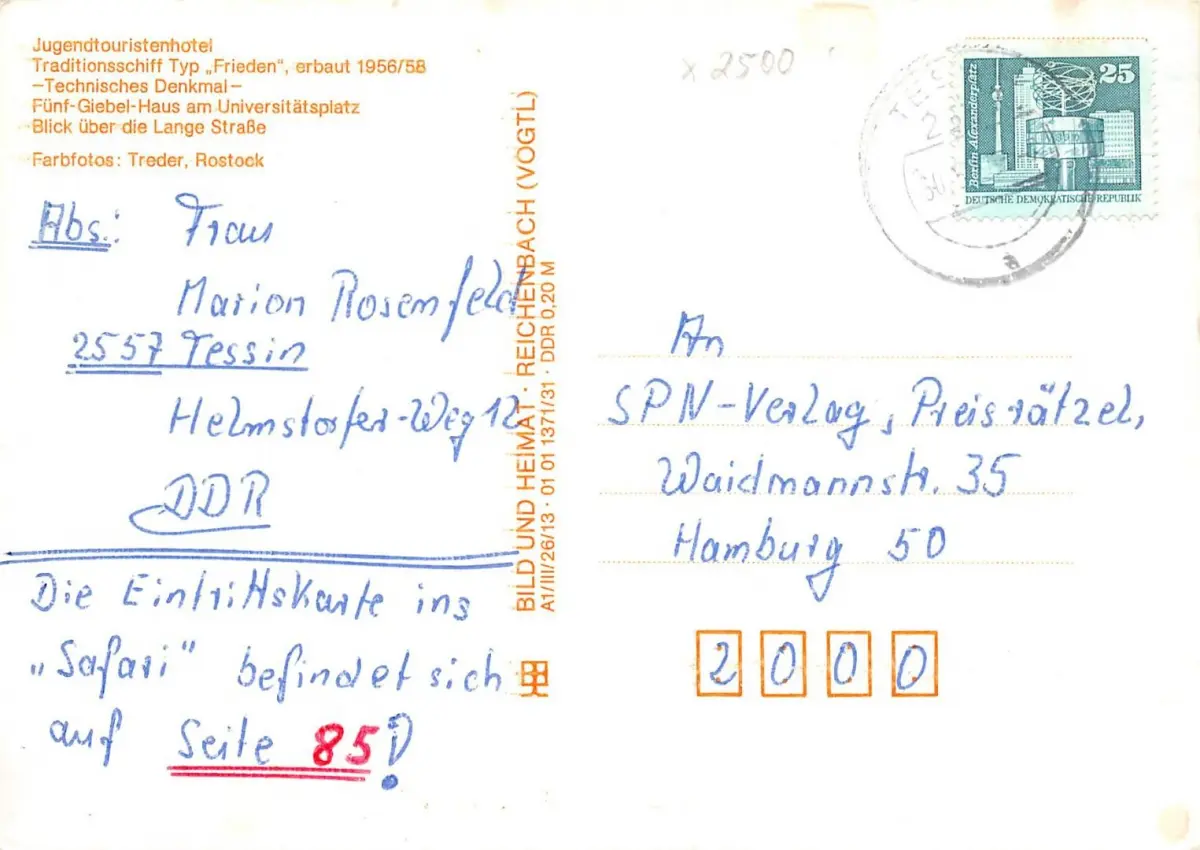 Jugendtouristenhotel
Traditionsschiff Typ „Frieden", erbaut 1956/58
—Technisches Denkmal—
Fünf-Giebel-Haus am Universitätsplatz
Blick über die Lange Straße
Farbfotos: Treder, Rostock
Abs.: Frau
Marion Rosenfeld
2557 Tessin
Helmstorfer-Weg 12
DDR
Die Eintrittskarte ins
„Safari" befindet sich
auf Seite 85!
BILD UND HEIMAT · REICHENBACH (VOGTL)
A1/III/26/13 · 01 01 1371/31 · DDR 0,20 M
x 2500
25
Berlin Alexanderplatz
DEUTSCHE DEMOKRATISCHE REPUBLIK
An
SPN-Verlag, Preisrätzel,
Waidmannstr. 35
Hamburg 50
2000